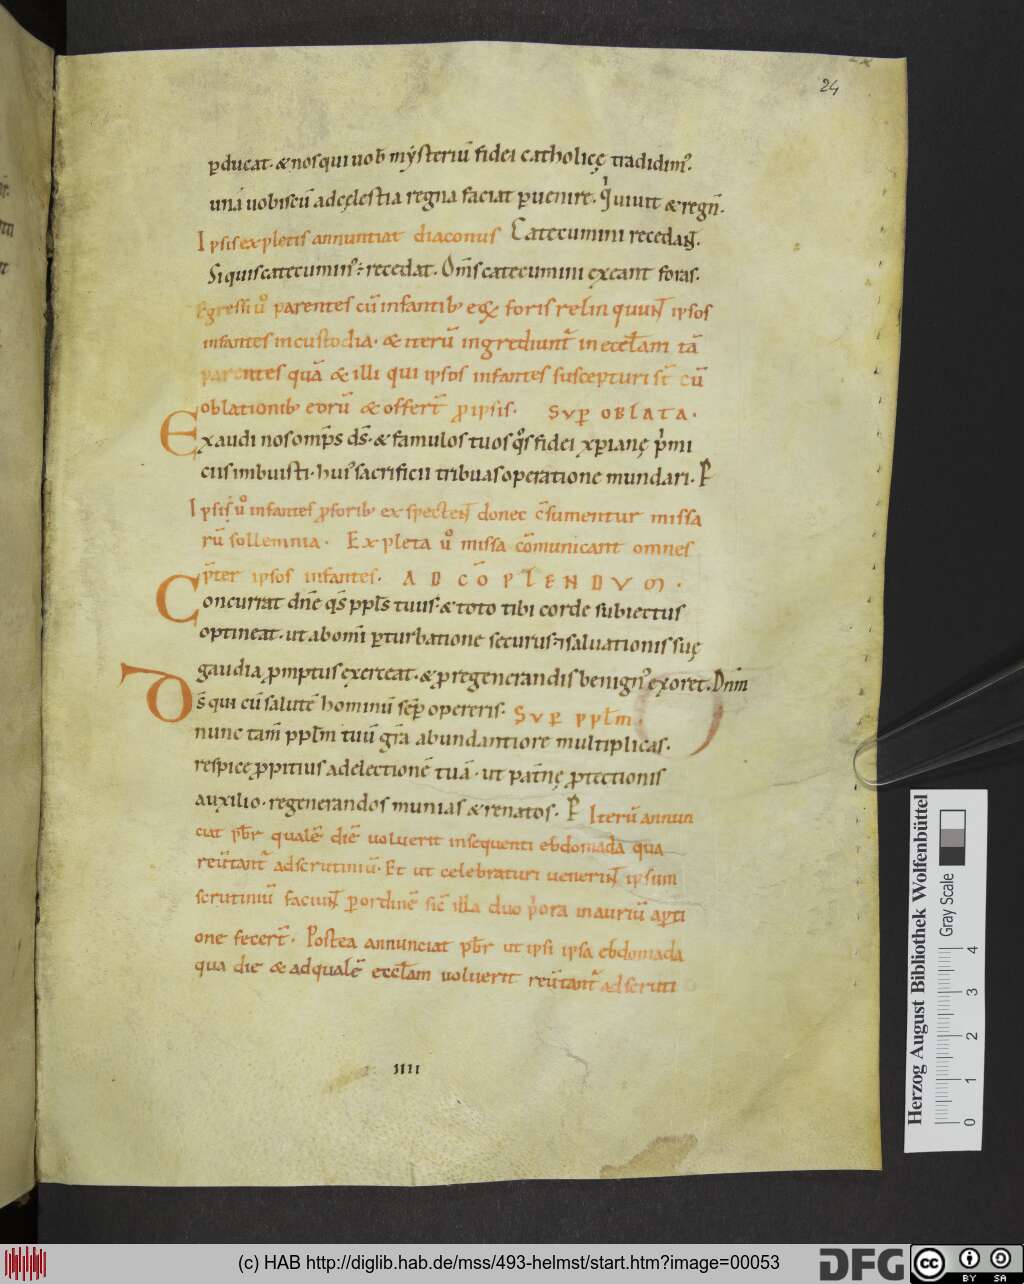 24
ꝑducat· & nos qui uob̄ mẏsteriū fidei catholicę tradidim᷒.
unā uobiscū ad cęlestia regna faciat ꝑuenire· q̇ uiuit & regn̄·
Ipsis expletis annuntiat diaconus Catecumini recedaɴ̄.
Si quis catecumin᷒; recedat. Om̄s catecumini exeant foras.
Egressi u̇ parentes cū infantib; foris relinquuɴ̄ ipsos
infantes in custodia· & iterū ingrediunt᷑ in eccl̄am tā
parentes quā & illi qui ipsos infantes suscepturi st̄ cū
oblationib; eorū & offert᷑ ꝓ ipsis. SUꝐ OBLATA.
Exaudi nos omp̄s ds̄· & famulos tuos qͦs fidei xp̄ianę p̄mi
ciis imbuisti· hui᷒ sacrificii tribuas operatione mundari. P̱
Ipsis u̇ infantes ꝓ forib; expecteɴ̄ donec c̄sumentur missa
rū sollemnia. Expleta u̇ missa cōmunicant omnes
p̄ter ipsos infantes. AD CŌPLENDUM.
Concurrat dn̄e qs̄ ppl̄s tuus· & toto tibi corde subiectus
optineat· ut ab om̄i ꝑturbatione securus; & saluationis suę
gaudia ꝓmptus exerceat· & ꝓ regenerandis benign᷒ exoret. Dn̄m
Ds̄ qui cū salutē hominū sep̄ opereris. SUꝐ PPL̄M.
nunc tam̄ ppl̄m tuū gr̄a abundantiore multiplicas.
respice ꝓpitius ad electionē tuā· ut pat̄nę ꝓtectionis
auxilio· regenerandos munias & renatos. P̱ Iterū annun
ciat pb̄r qualē diē uoluerit insequenti ebdomada qua
reūtant᷑ ad scrutiniū. Et ut celebraturi ueneriɴ̄ ipsum
scrutiniū faciuɴ̄ ꝑ ordinē sic̄ illa duo p̄ora in auriū aꝑti
one fecer̄. Postea annunciat pb̄r ut ipsi ipsa ebdomada
qua die & ad qualē eccl̄am uoluerit reūtant᷑ ad scruti
IIII
Herzog August Bibliothek Wolfenbüttel
Gray Scale
0 1 2 3 4
(c) HAB http://diglib.hab.de/mss/493-helmst/start.htm?image=00053
DFG
cc BY SA